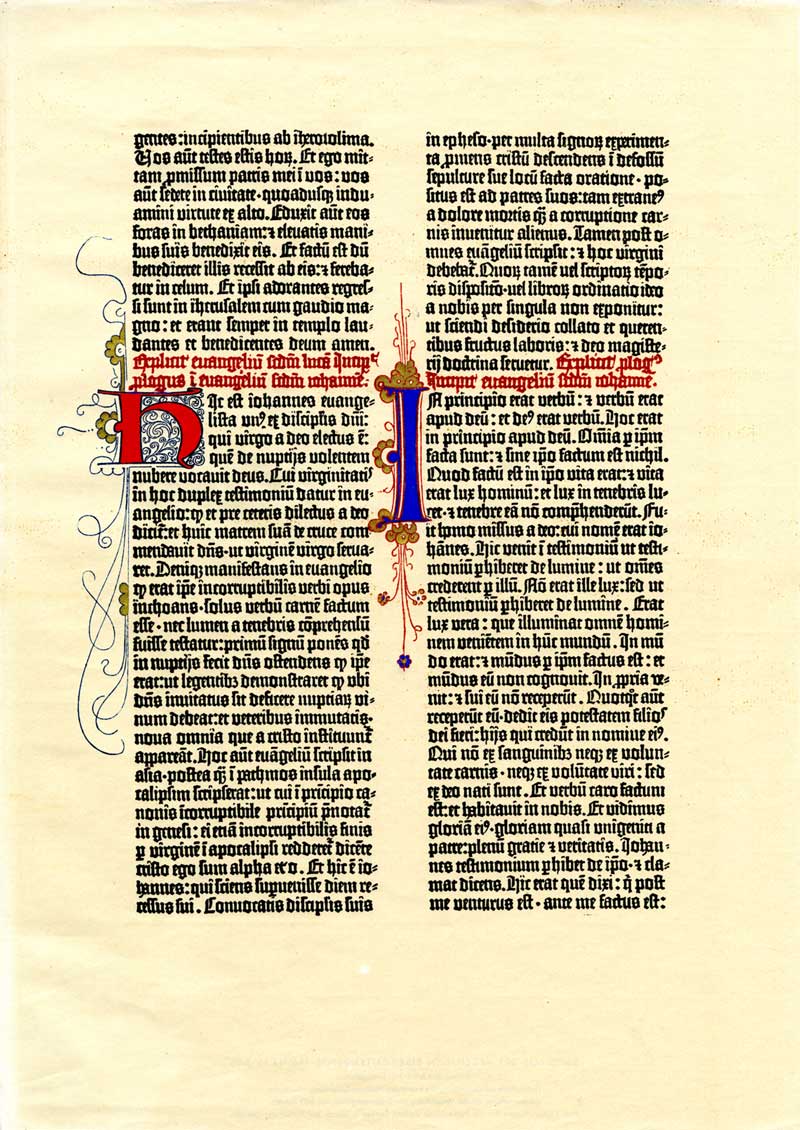 gentes: incipientibus ab iherosolima.
Vos aūt testes estis hoꝝ. Et ego mit⸗
tam ꝓmissum patris mei ī vos: vos
aūt sedete in civitate · quoadusqꝫ indu⸗
amini virtute ex alto. Eduxit aūt eos
foras in bethaniam: ⁊ elevatis mani⸗
bus suis benedixit eis. Et factū est dū
benediceret illis recessit ab eis: ⁊ fereba⸗
tur in celum. Et ipsi adorantes regres⸗
si sunt in iherusalem cum gaudio ma⸗
gno: et erant semper in templo lau⸗
dantes et benedicentes deum amen.
Explicit euangeliū scdm lucā Incipit
plogus ī euangeliū scdm iohanne.
Hic est iohannes euange⸗
lista vnꝰ ex discipls dnī:
qui virgo a deo electus ē:
quē de nuptijs volentem
nubere vocavit deus. Cui virginitatꝭ
in hoc duplex testimoniū datur in eu⸗
angelio: ꝙ et pre ceteris dilectus a deo
dicit̄: et huic matrem suā de cruce com⸗
mendavit dn̄s · ut virginē virgo serva⸗
ret. Deniqꝫ manifestans in euangelio
ꝙ erat ipe incorruptibilis verbi opus
inchoans · solus verbū carnē factum
esse · nec lumen a tenebris cōprehensū
fuisse testatur: primū signū ponēs qd̄
in nuptijs fecit dn̄s ostendens ꝙ ipe
erat: ut legentibꝫ demonstraret ꝙ vbi
dn̄s invitatus sit deficere nuptiaꝝ vi⸗
num debeat: et veteribus immutatis ·
nova omnia que a cristo instituunt̄
appareāt. Hoc aūt euāgeliū scripsit in
asia · postea qꝫ ī pathmos insula apo⸗
calipsim scripserat: ut cui ī prīcipio ca⸗
nonis īcorruptibile prīcipiū p̄notat̄
in genesi: ei etiā incorruptibilis finis
ꝑ virginē ī apocalipsi redderet̄ dicēte
cristo ego sum alpha et o. Et hic ē io⸗
hannes: qui sciens suꝑvenisse diem re⸗
cessus sui. Convocatis discipls suis
in epheso · per multa signoꝝ experimen⸗
ta ꝓmens cristū descendens ī defossū
sepulture sue locū facta oratione · po⸗
situs est ad patres suos: tam extraneꝰ
a dolore mortis qꝫ a corruptione car⸗
nis invenitur alienus. Tamen post o⸗
mnes euāgeliū scripsit: ⁊ hoc virgini
debebat̄. Quoꝝ tamē vel scriptoꝝ tēpo⸗
ris disposicō · vel libroꝝ ordinatio ideo
a nobis per singula non exponitur:
ut sciendi desiderio collato et queren⸗
tibus fructus laboris: ⁊ deo magiste⸗
rij doctrina servetur. Explicit plogꝰ
Incipit euangeliū scdm iohanne.
In principio erat verbū: ⁊ verbū erat
apud deū: et deꝰ erat verbū. Hoc erat
in principio apud deū. Omīa ꝑ ip̄m
facta sunt: ⁊ sine ip̄o factum est nichil.
Quod factū est in ip̄o vita erat: ⁊ vita
erat lux hominū: et lux in tenebris lu⸗
cet · ⁊ tenebre eā nō comp̄henderūt. Fu⸗
it homo missus a deo: cui nomē erat io⸗
hānes. Hic venit ī testimoniū ut testi⸗
moniū ꝑhiberet de lumine: ut om̄es
crederent ꝑ illū. Nō erat ille lux: sed ut
testimoniū ꝑhiberet de lumine. Erat
lux vera: que illuminat omnē homi⸗
nem veniētem in hūc mundū. In mū⸗
do erat: ⁊ mūdus ꝑ ip̄m factus est: et
mūdus eū non cognouit. In ꝓpria ve⸗
nit: ⁊ sui eū nō receperūt. Quotqt̄ aūt
receperūt eū · dedit eis potestatem filioꝭ
dei fieri: hijs qui credūt in nomine eiꝰ.
Qui nō ex sanguinibꝫ neqꝫ ex volun⸗
tate carnis · neqꝫ ex volūtate viri: sed
ex deo nati sunt. Et verbū caro factum
est: et habitavit in nobis. Et vidimus
gloriā eiꝰ · gloriam quasi vnigeniti a
patre: plenū gratie ⁊ veritatis. Iohan⸗
nes testimonium ꝑhibet de ip̄o · ⁊ cla⸗
mat dicens. Hic erat quē dixi: q̄ post
me venturus est · ante me factus est: